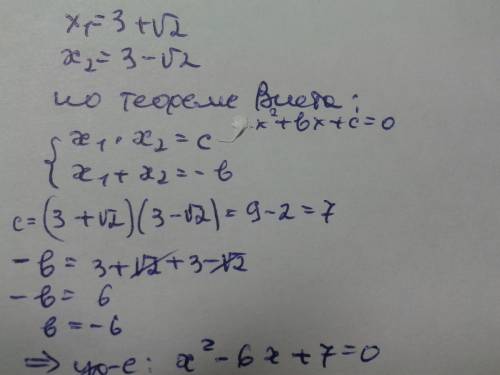 x₁ = 3 + √2
x₂ = 3 - √2
по теореме Виета:
x² + bx + c = 0
{ x₁ · x₂ = c
x₁ + x₂ = - b
c = (3 + √2)(3 - √2) = 9 - 2 = 7
- b = 3 + √2 + 3 - √2
- b = 6
b = - 6
⇒ ур-е: x² - 6x + 7 = 0